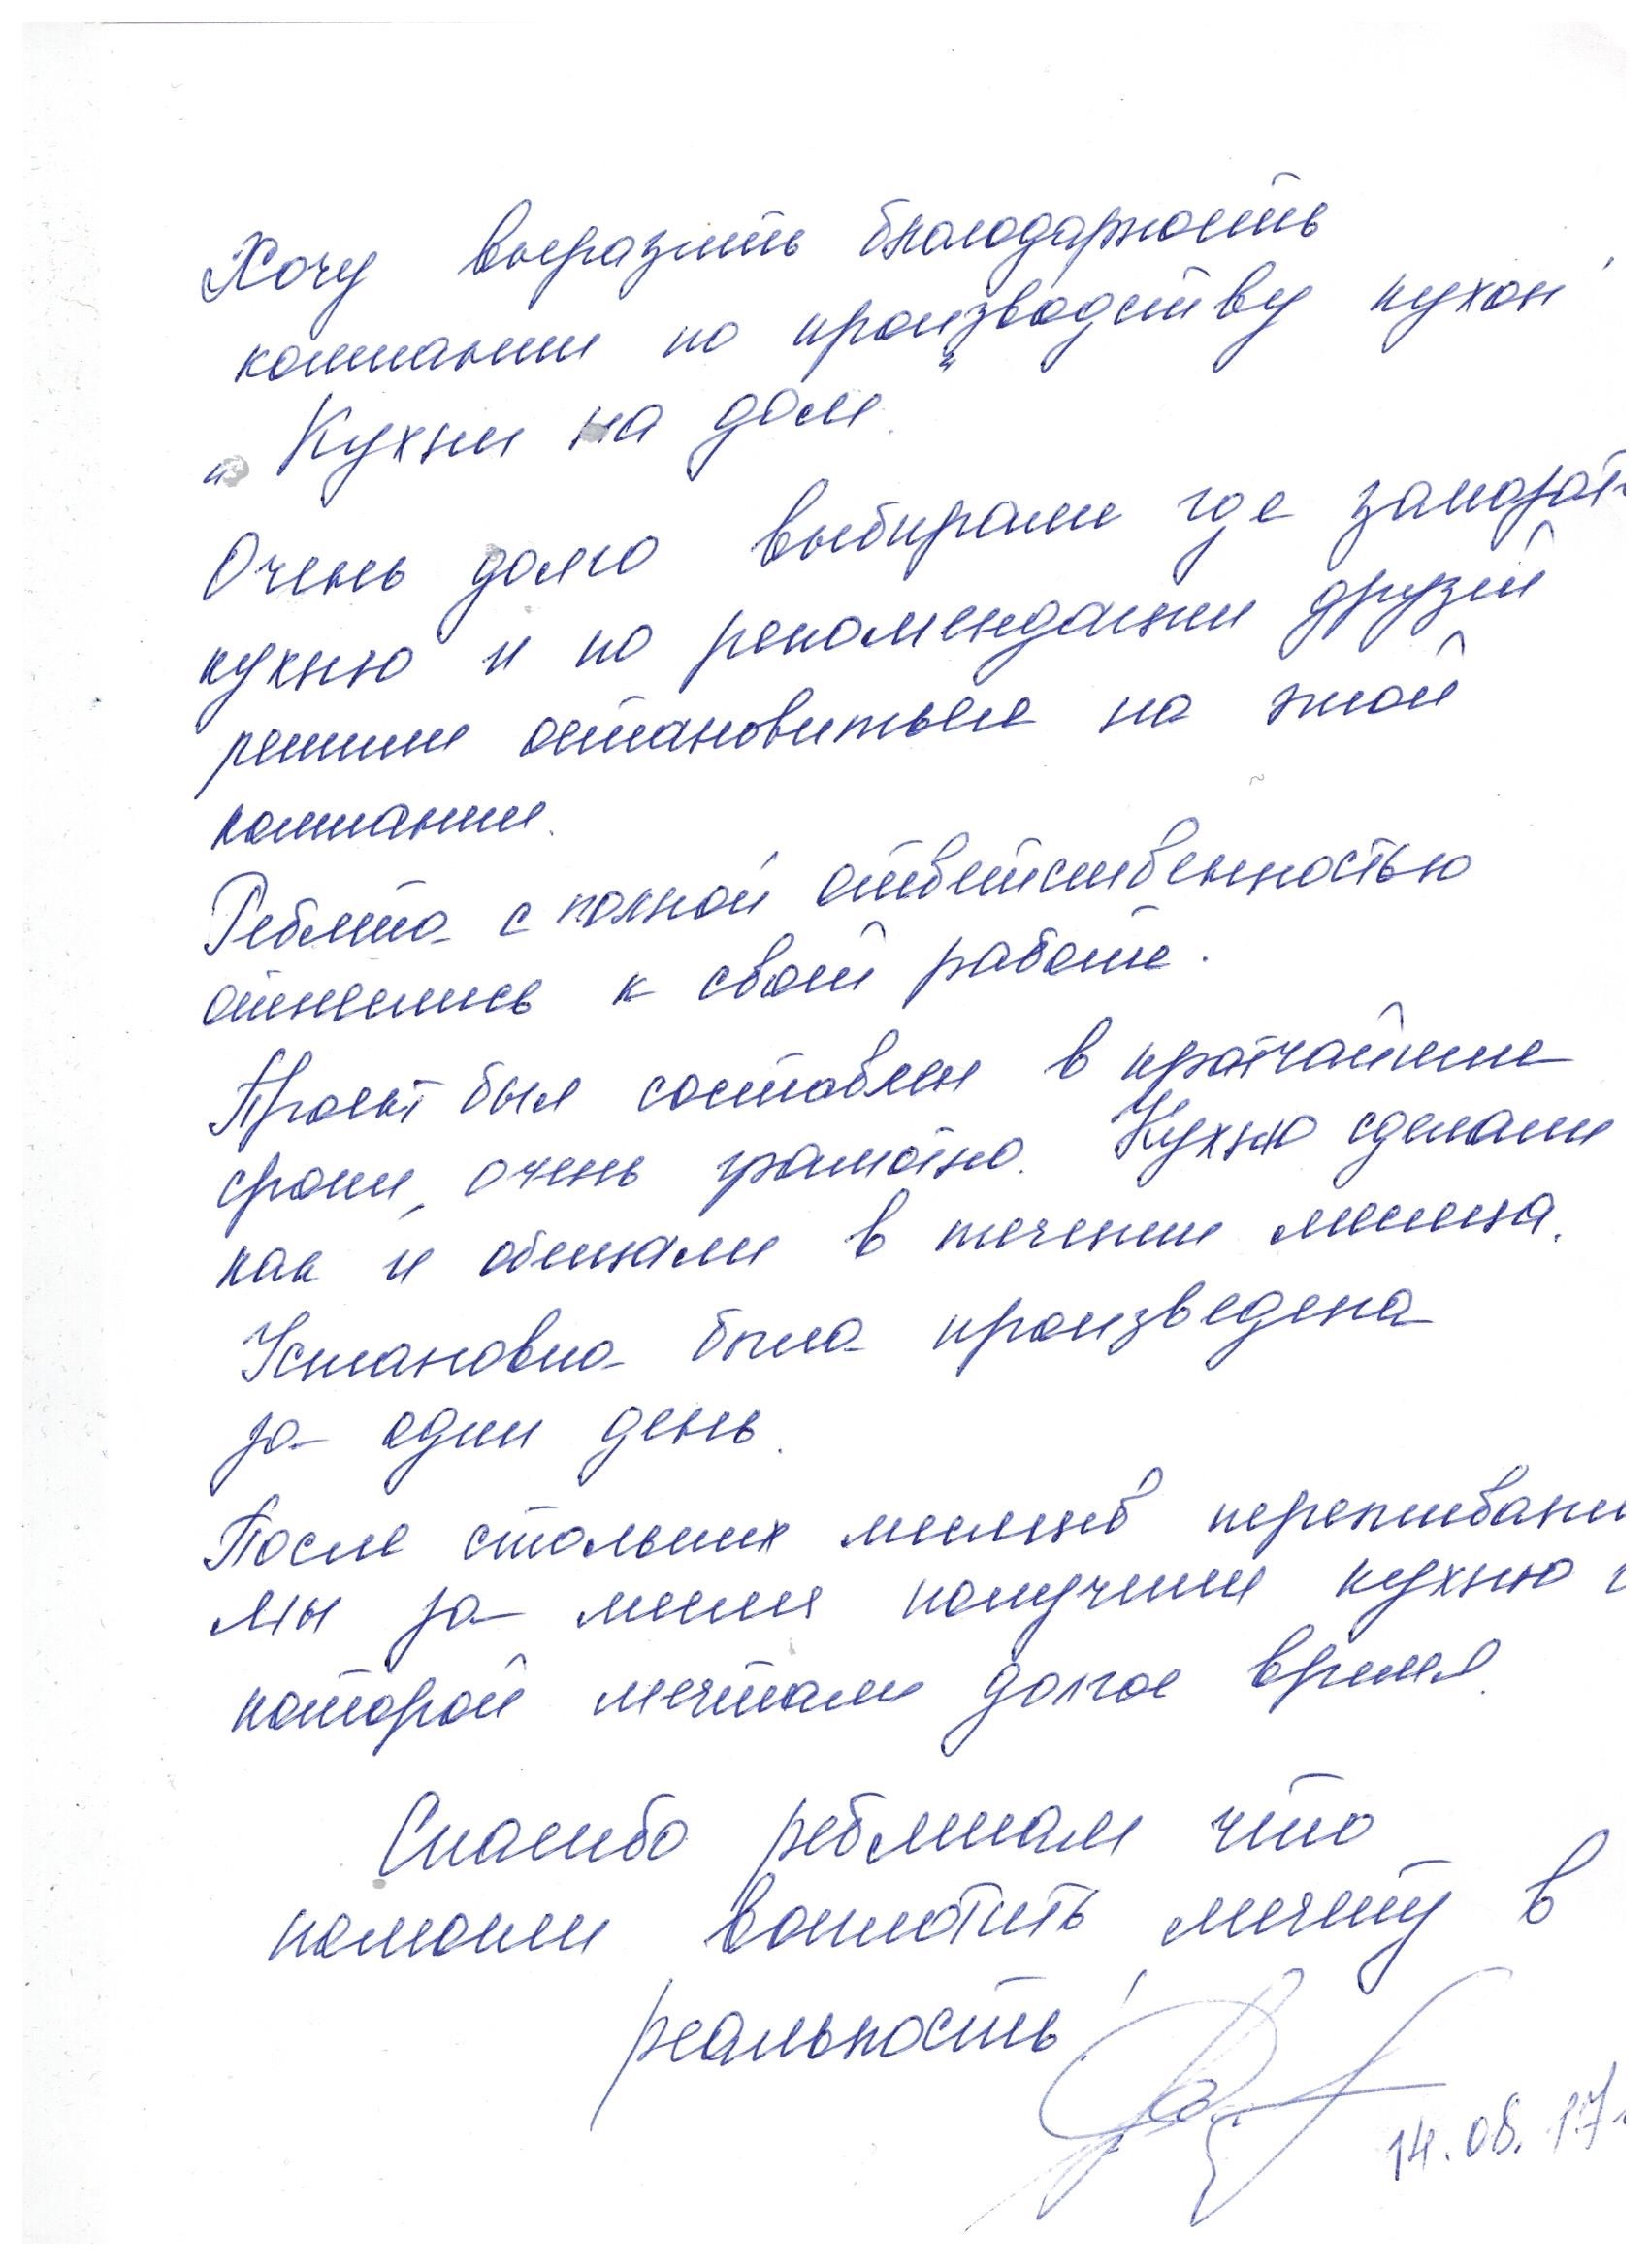 Хочу выразить благодарность
компании по производству кухонь
„Кухни на дом"
Очень долго выбирали где заказать
кухню и по рекомендации друзей
решили остановиться на этой
компании.
Ребята с полной ответственностью
отнеслись к своей работе.
Проект был составлен в кратчайшие
сроки, очень грамотно. Кухню сделали
как и обещали в течении месяца.
Установка была произведена
за один день.
После стольких месяцев
мы за месяц получили кухню о
которой мечтали долгое время.
Спасибо ребятам что
помогли воплотить мечту в
реальность!
14.08.17г